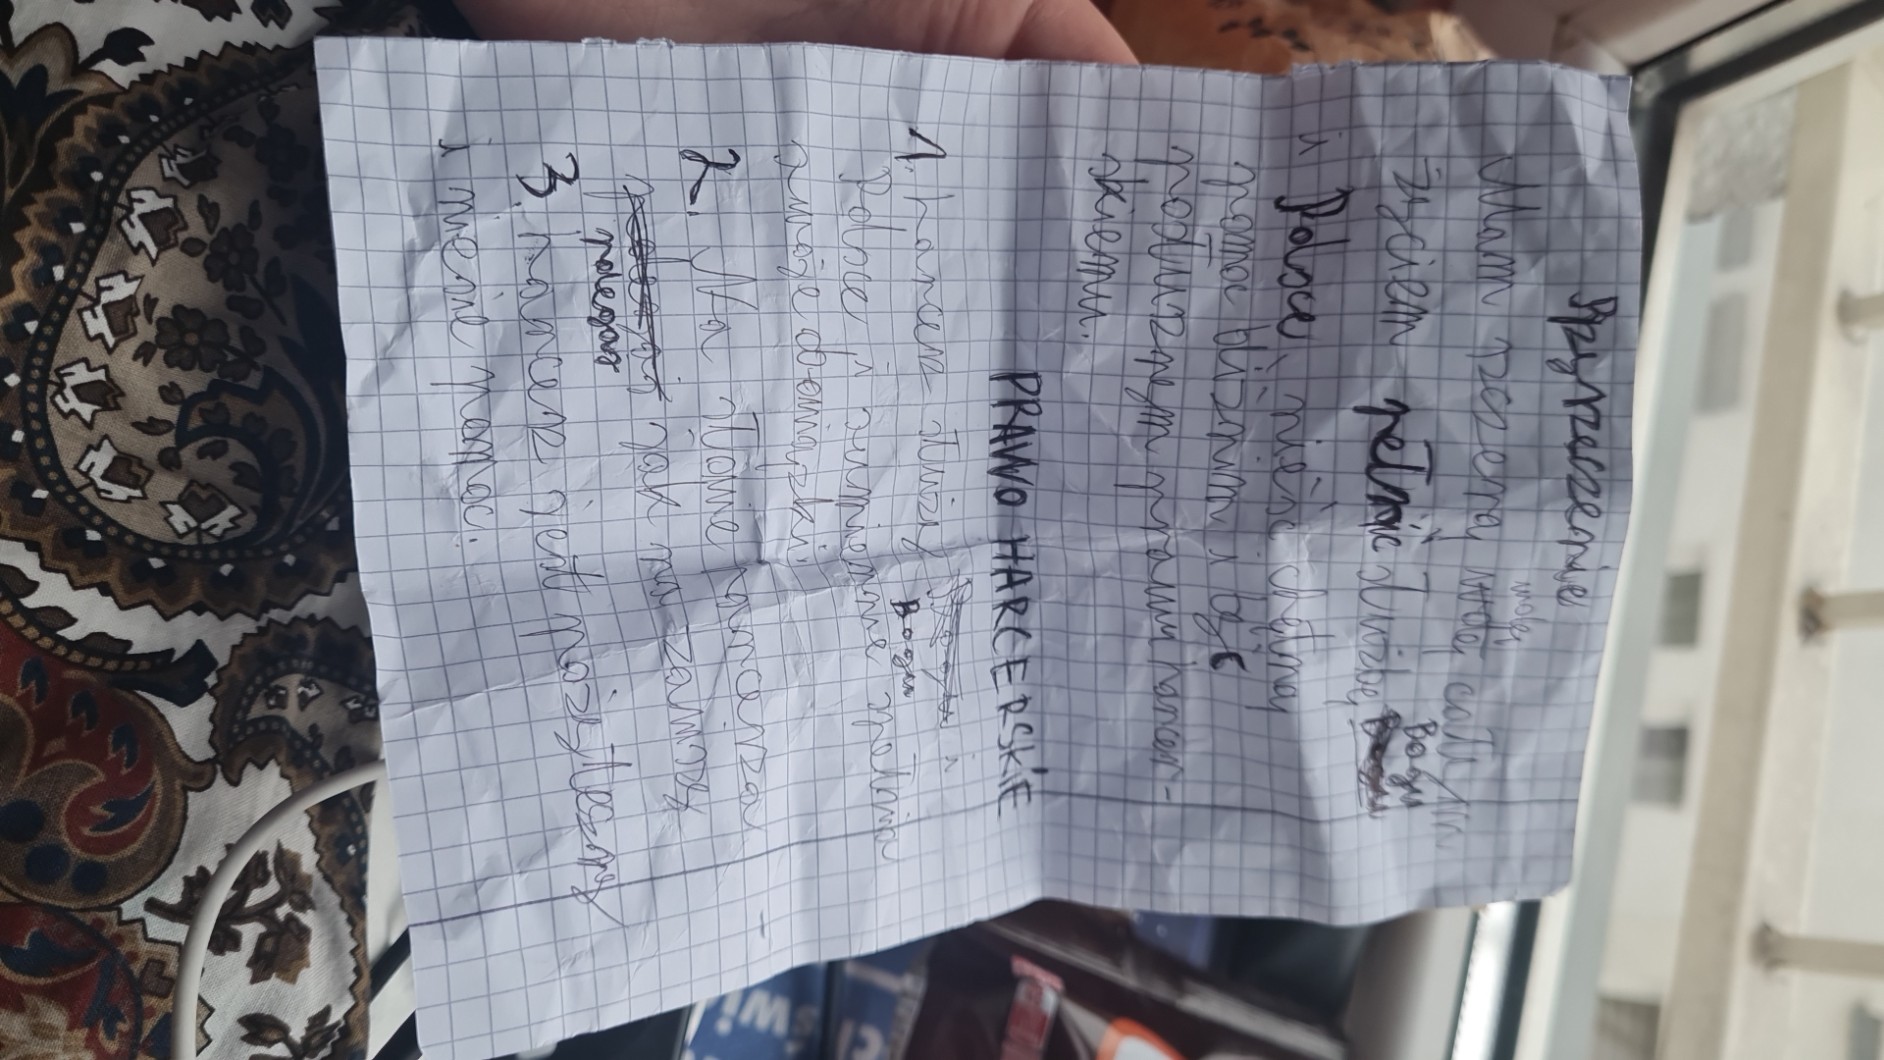 Przyrzeczenie
Mam szczerą wolę całym
życiem pełnić służbę Bogu
i Polsce, nieść chętną
pomoc bliźnim i być
posłusznym prawu harcer-
skiemu.
PRAWO HARCERSKIE
1. harcerz służy Bogu i
Polsce i sumiennie spełnia
swoje obowiązki.
2. Na słowie harcerza
polegaj jak na zawiszy
3. harcerz jest pożyteczny
i nieśie pomoc.